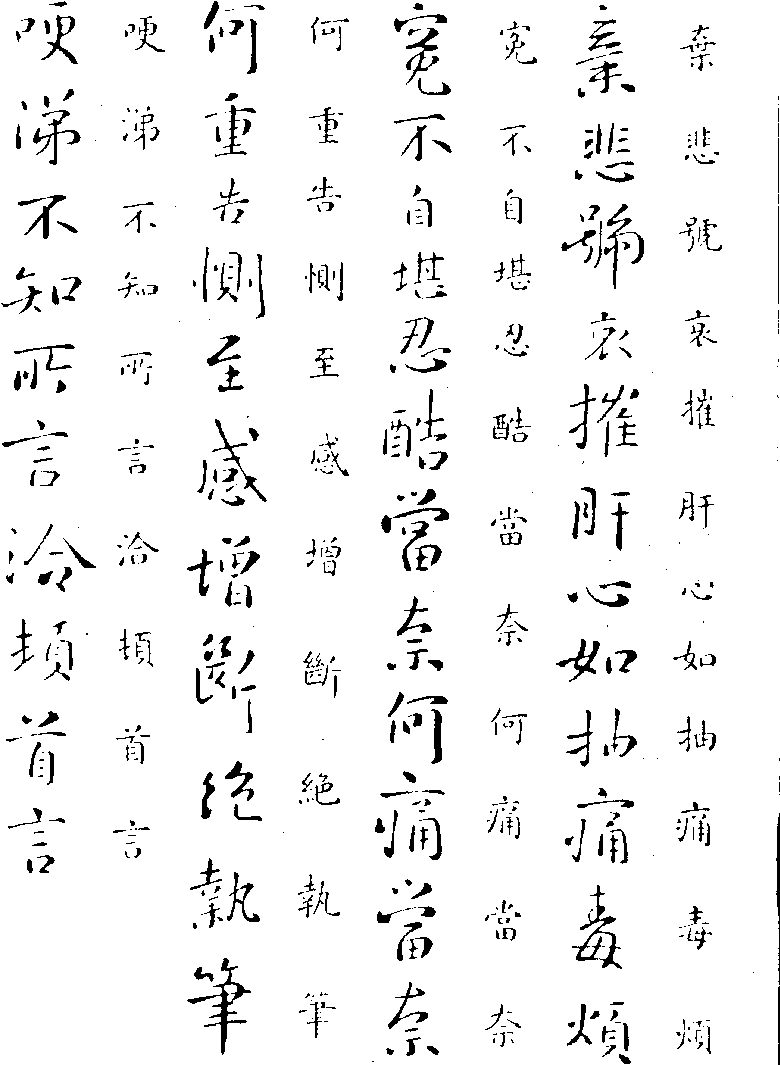 棄悲號哀摧肝心如抽痛毒煩
棄悲號哀摧肝心如抽痛毒煩
寃不自堪忍酷當奈何痛當奈
寃不自堪忍酷當奈何痛當奈
何重告惻至感增斷絕執筆
何重告惻至感增斷絕執筆
哽涕不知所言洽頓首言
哽涕不知所言洽頓首言